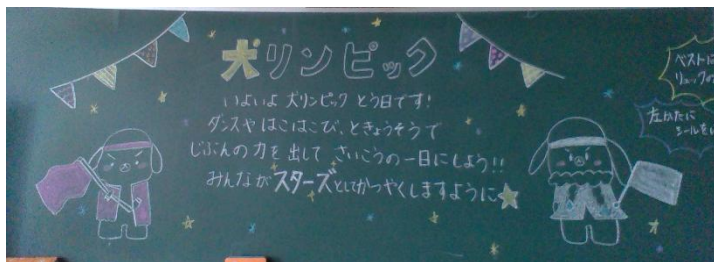 犬リンピック
いよいよ 犬リンピック とう日です!
ダンスや はこはこび、ときょうそうで
じぶんの力を出して さいこうの一日にしよう!!
みんなが スターズとしてかつやくしますように
ベストに
リュックの
左かたに
シールを